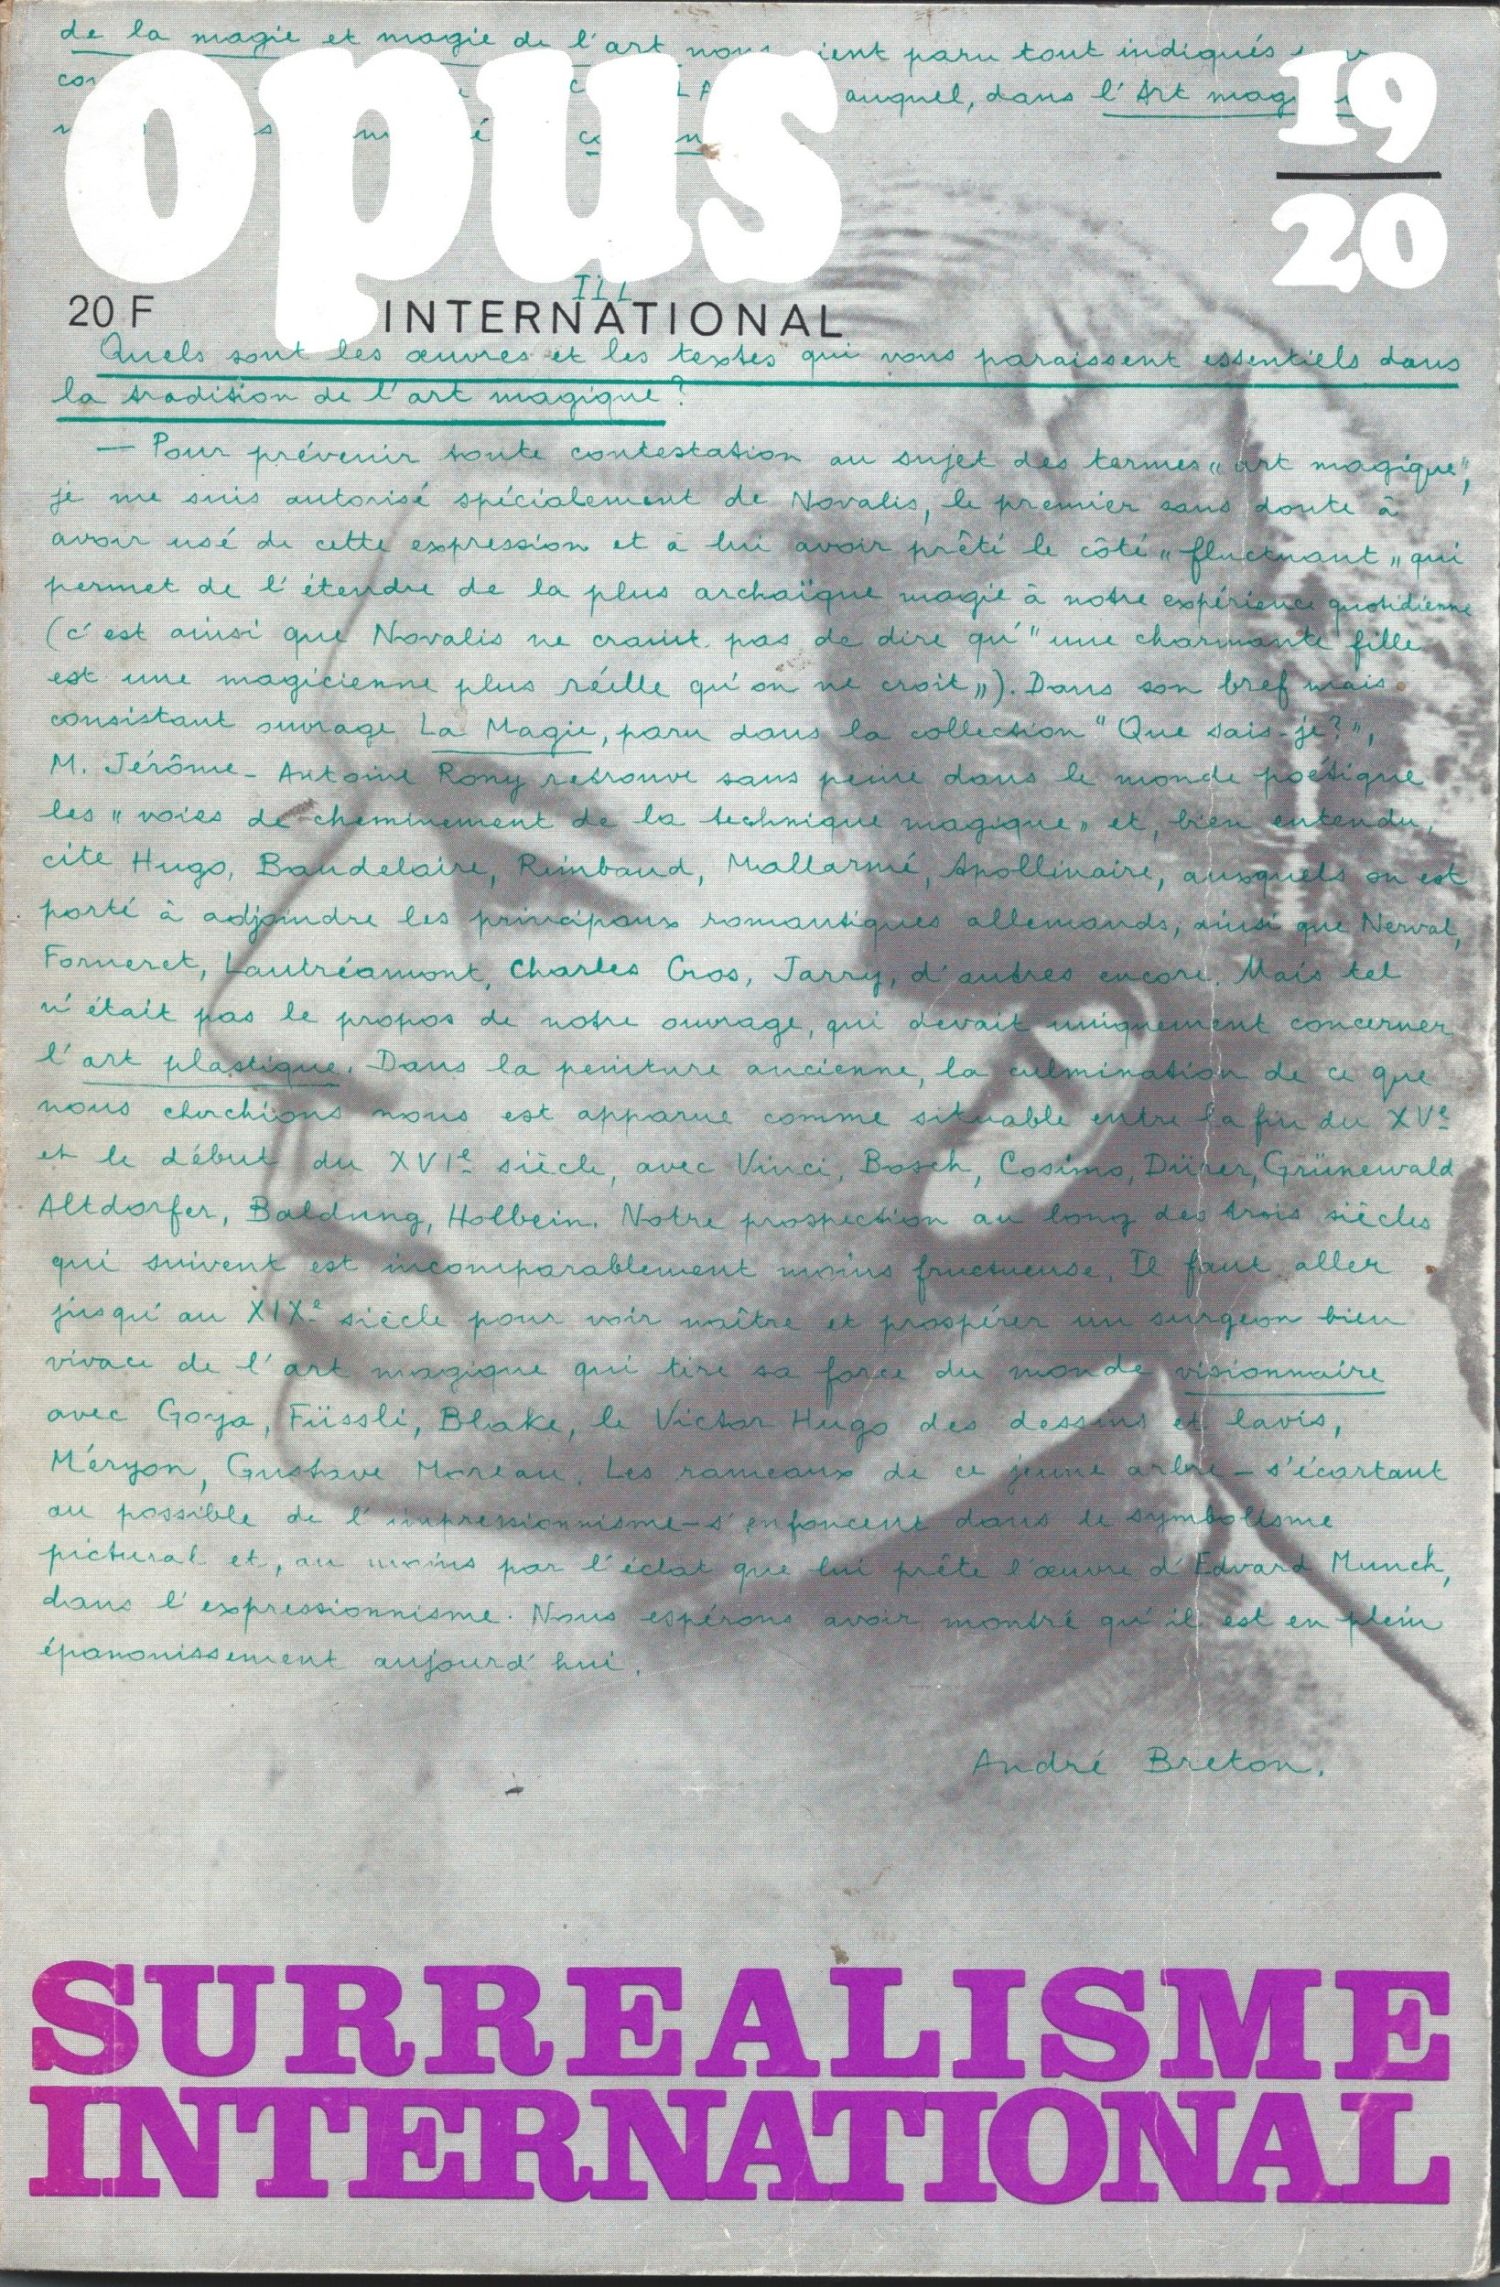 de la magie et magie de l'art nous paru tout indiqués
auquel, dans l'Art mag
opus
19
20
20 F
INTERNATIONAL
III
Quels sont les œuvres et les textes qui vous paraissent essentiels dans
la tradition de l'art magique ?
— Pour prévenir toute contestation au sujet des termes « art magique »,
je me suis autorisé spécialement de Novalis, le premier sans doute à
avoir usé de cette expression et à lui avoir prêté le côté « fluctuant » qui
permet de l'étendre de la plus archaïque magie à notre expérience quotidienne
(c'est ainsi que Novalis ne craint pas de dire qu'" une charmante fille
est une magicienne plus réelle qu'on ne croit »). Dans son bref mais
consistant ouvrage La Magie, paru dans la collection " Que sais-je? ",
M. Jérôme-Antoine Rony retrouve sans peine dans le monde poétique
les « voies de cheminement de la technique magique » et, bien entendu,
cite Hugo, Baudelaire, Rimbaud, Mallarmé, Apollinaire, auxquels on est
porté à adjoindre les principaux romantiques allemands, ainsi que Nerval,
Forneret, Lautréamont, Charles Cros, Jarry, d'autres encore. Mais tel
n'était pas le propos de notre ouvrage, qui devait uniquement concerner
l'art plastique. Dans la peinture ancienne, la culmination de ce que
nous cherchions nous est apparue comme situable entre la fin du XVe
et le début du XVIe siècle, avec Vinci, Bosch, Cosimo, Dürer, Grünewald
Altdorfer, Baldung, Holbein. Notre prospection au long des trois siècles
qui suivent est incomparablement moins fructueuse. Il faut aller
jusqu'au XIXe siècle pour voir naître et prospérer un surgeon bien
vivace de l'art magique qui tire sa force du monde visionnaire
avec Goya, Füssli, Blake, le Victor Hugo des dessins et lavis,
Méryon, Gustave Moreau. Les rameaux de ce jeune arbre - s'écartant
au possible de l'impressionnisme - s'enfoncent dans le symbolisme
pictural et, au moins par l'éclat que lui prête l'œuvre d'Edvard Munch,
dans l'expressionnisme. Nous espérons avoir montré qu'il est en plein
épanouissement aujourd'hui.
André Breton.
SURREALISME
INTERNATIONAL